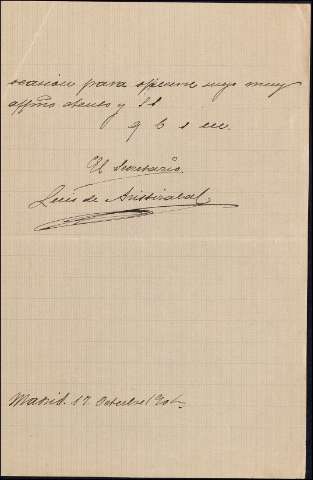 ocasion para ofrecerme suyo muy
affmo atento y SS
q b s m.
El Secretario.
Luis de Aristizabal
Madrid. 17 Octubre